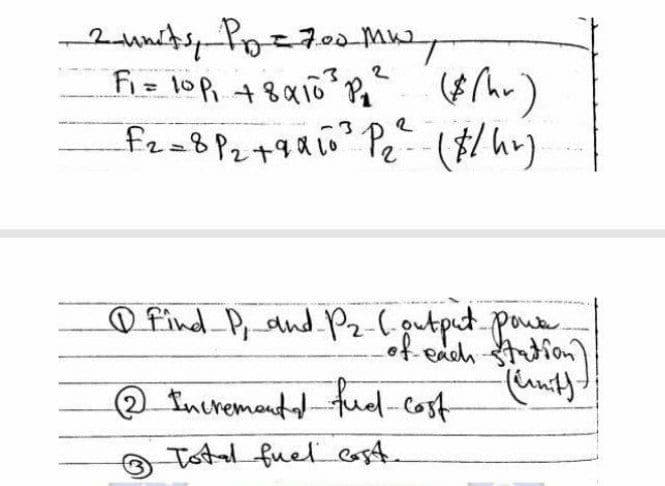 2 units, P_D = 700 MW,
F₁ = 10 P₁ + 8x10⁻³ P₁² ($/hr)
F₂ = 8 P₂ + 9x10⁻³ P₂² ($/hr)
① Find P₁ and P₂ (output power
of each station)
(units)
② Incremental fuel cost
③ Total fuel cost.